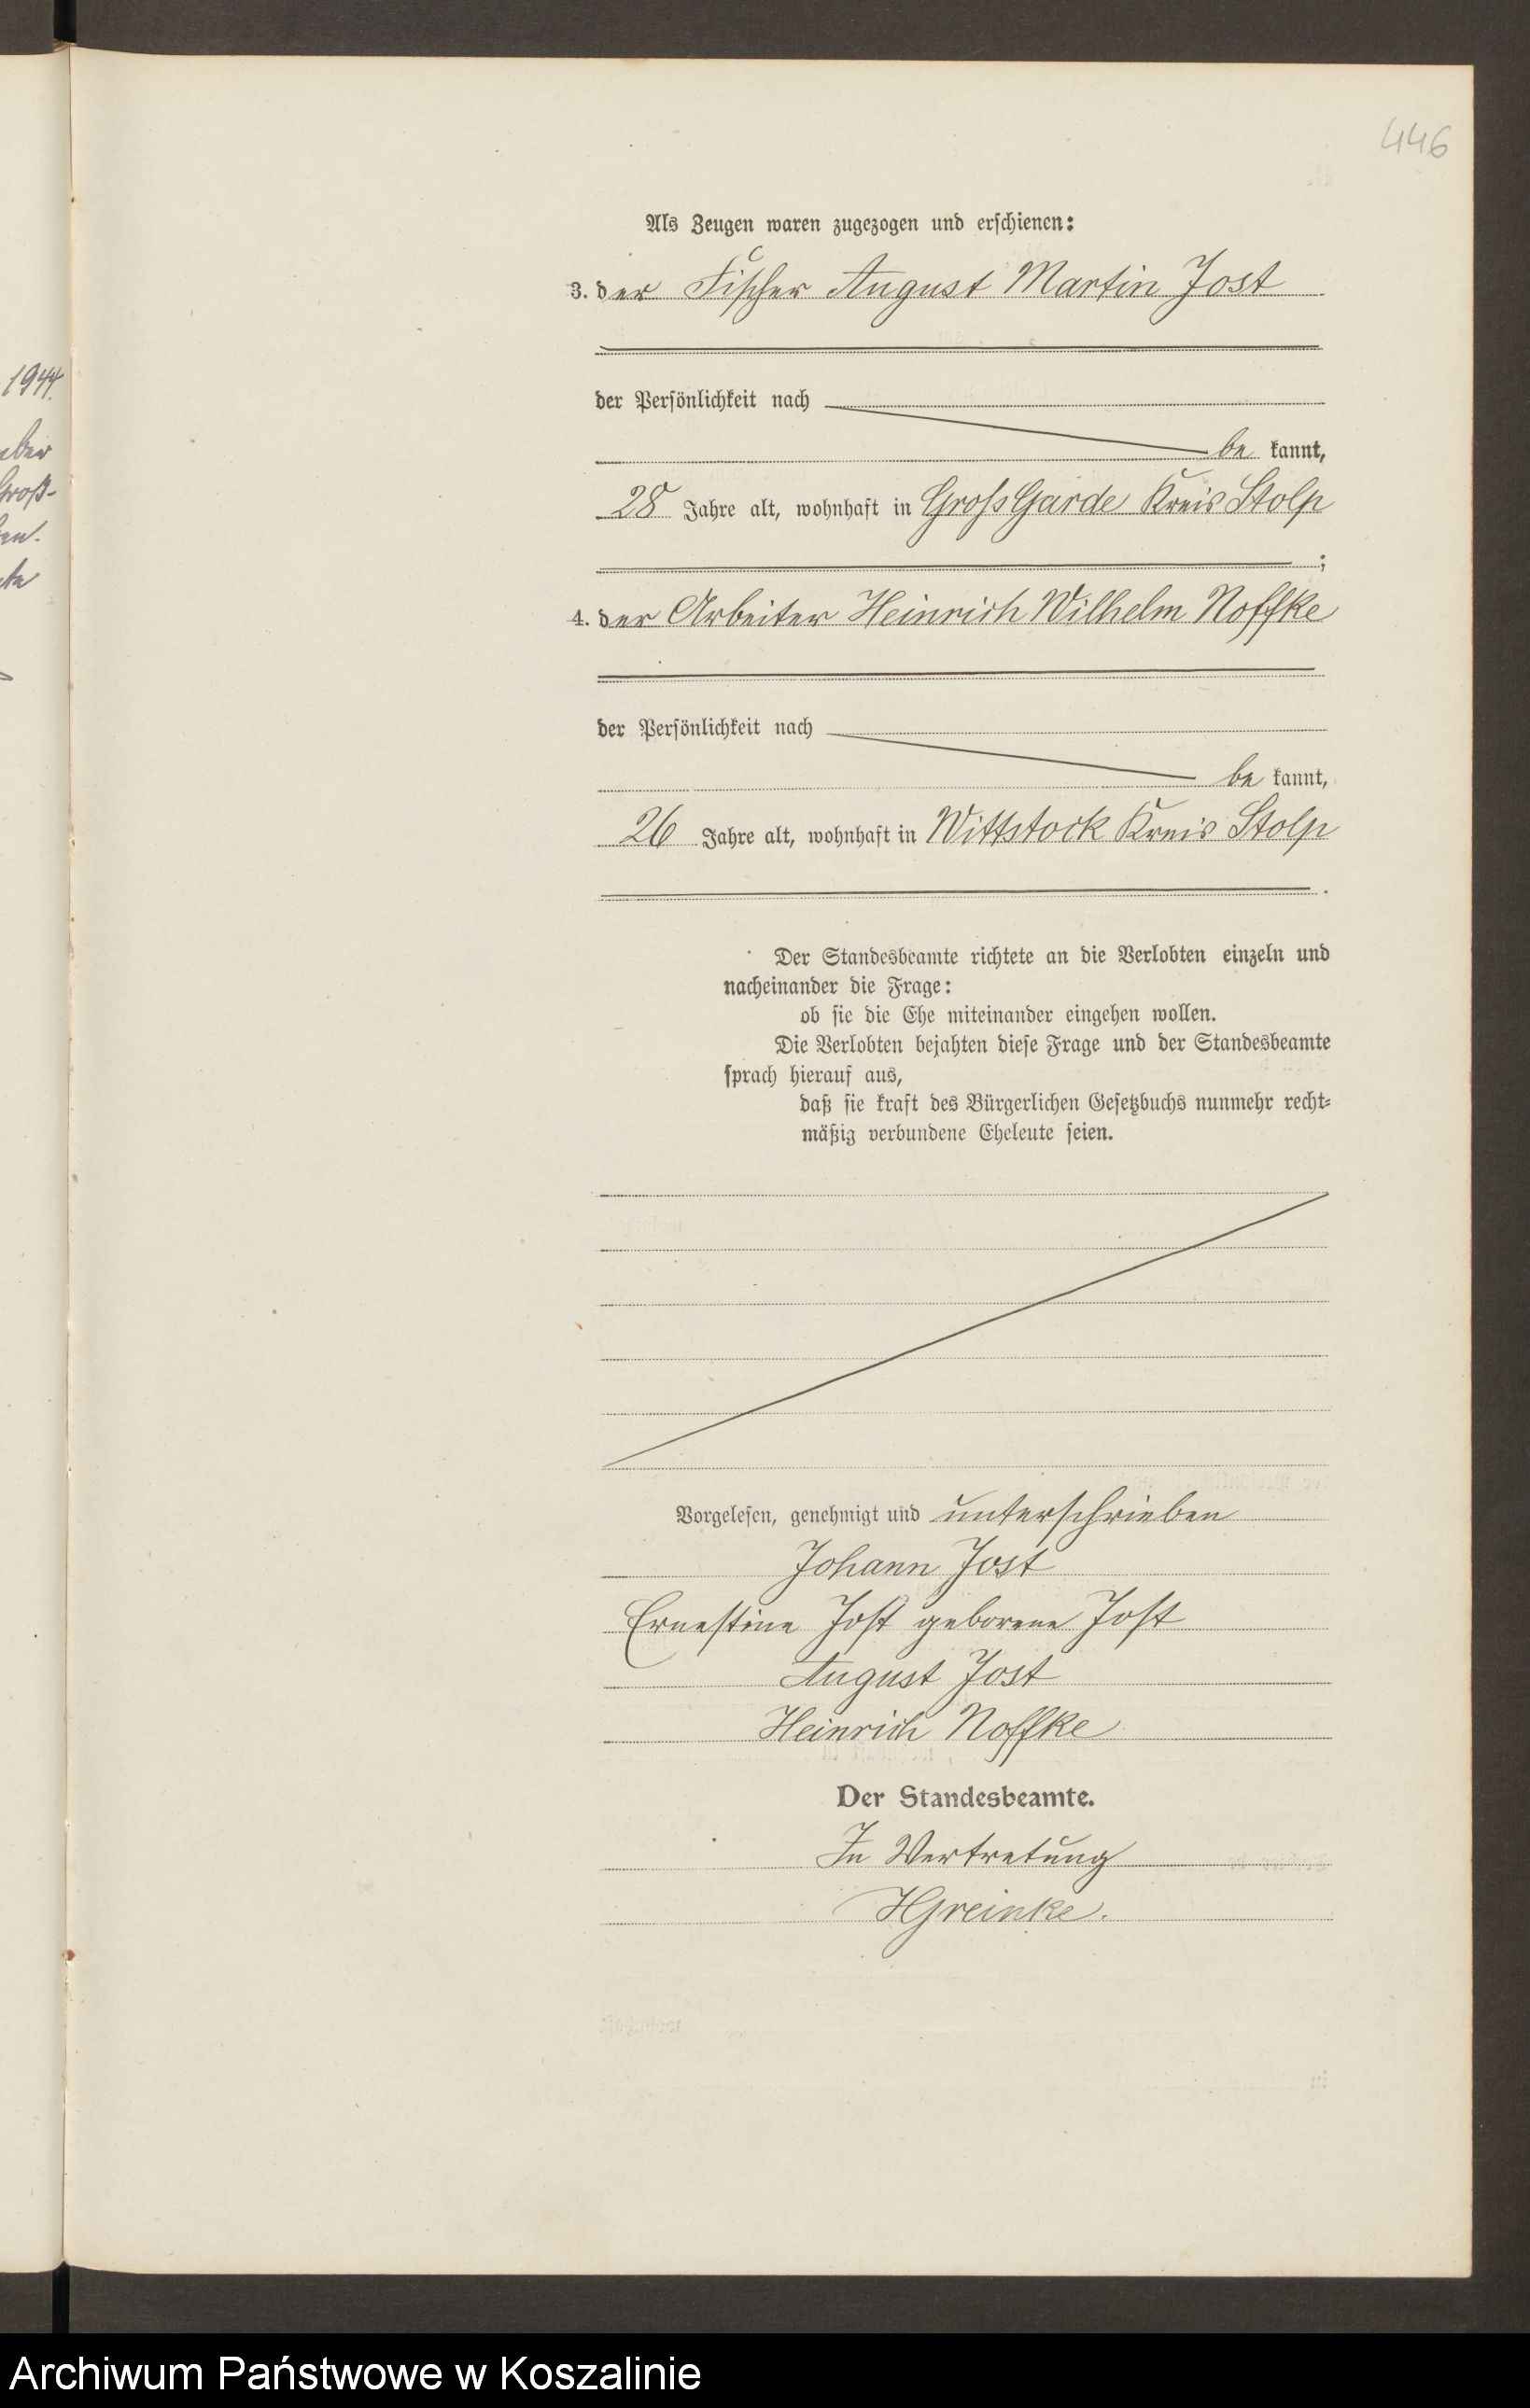 446
1944.
Groß-
Als Zeugen waren zugezogen und erschienen:
3. der Fischer August Martin Jost
der Persönlichkeit nach
be kannt,
28 Jahre alt, wohnhaft in Gross Garde Kreis Stolp
;
4. der Arbeiter Heinrich Wilhelm Noffke
der Persönlichkeit nach
be kannt,
26 Jahre alt, wohnhaft in Wittstock Kreis Stolp
.
Der Standesbeamte richtete an die Verlobten einzeln und
nacheinander die Frage:
ob sie die Ehe miteinander eingehen wollen.
Die Verlobten bejahten diese Frage und der Standesbeamte
sprach hierauf aus,
daß sie kraft des Bürgerlichen Gesetzbuchs nunmehr recht-
mäßig verbundene Eheleute seien.
Vorgelesen, genehmigt und unterschrieben
Johann Jost
Ernestine Jost geborene Jost
August Jost
Heinrich Noffke
Der Standesbeamte.
In Vertretung
HGreinke.
Archiwum Państwowe w Koszalinie